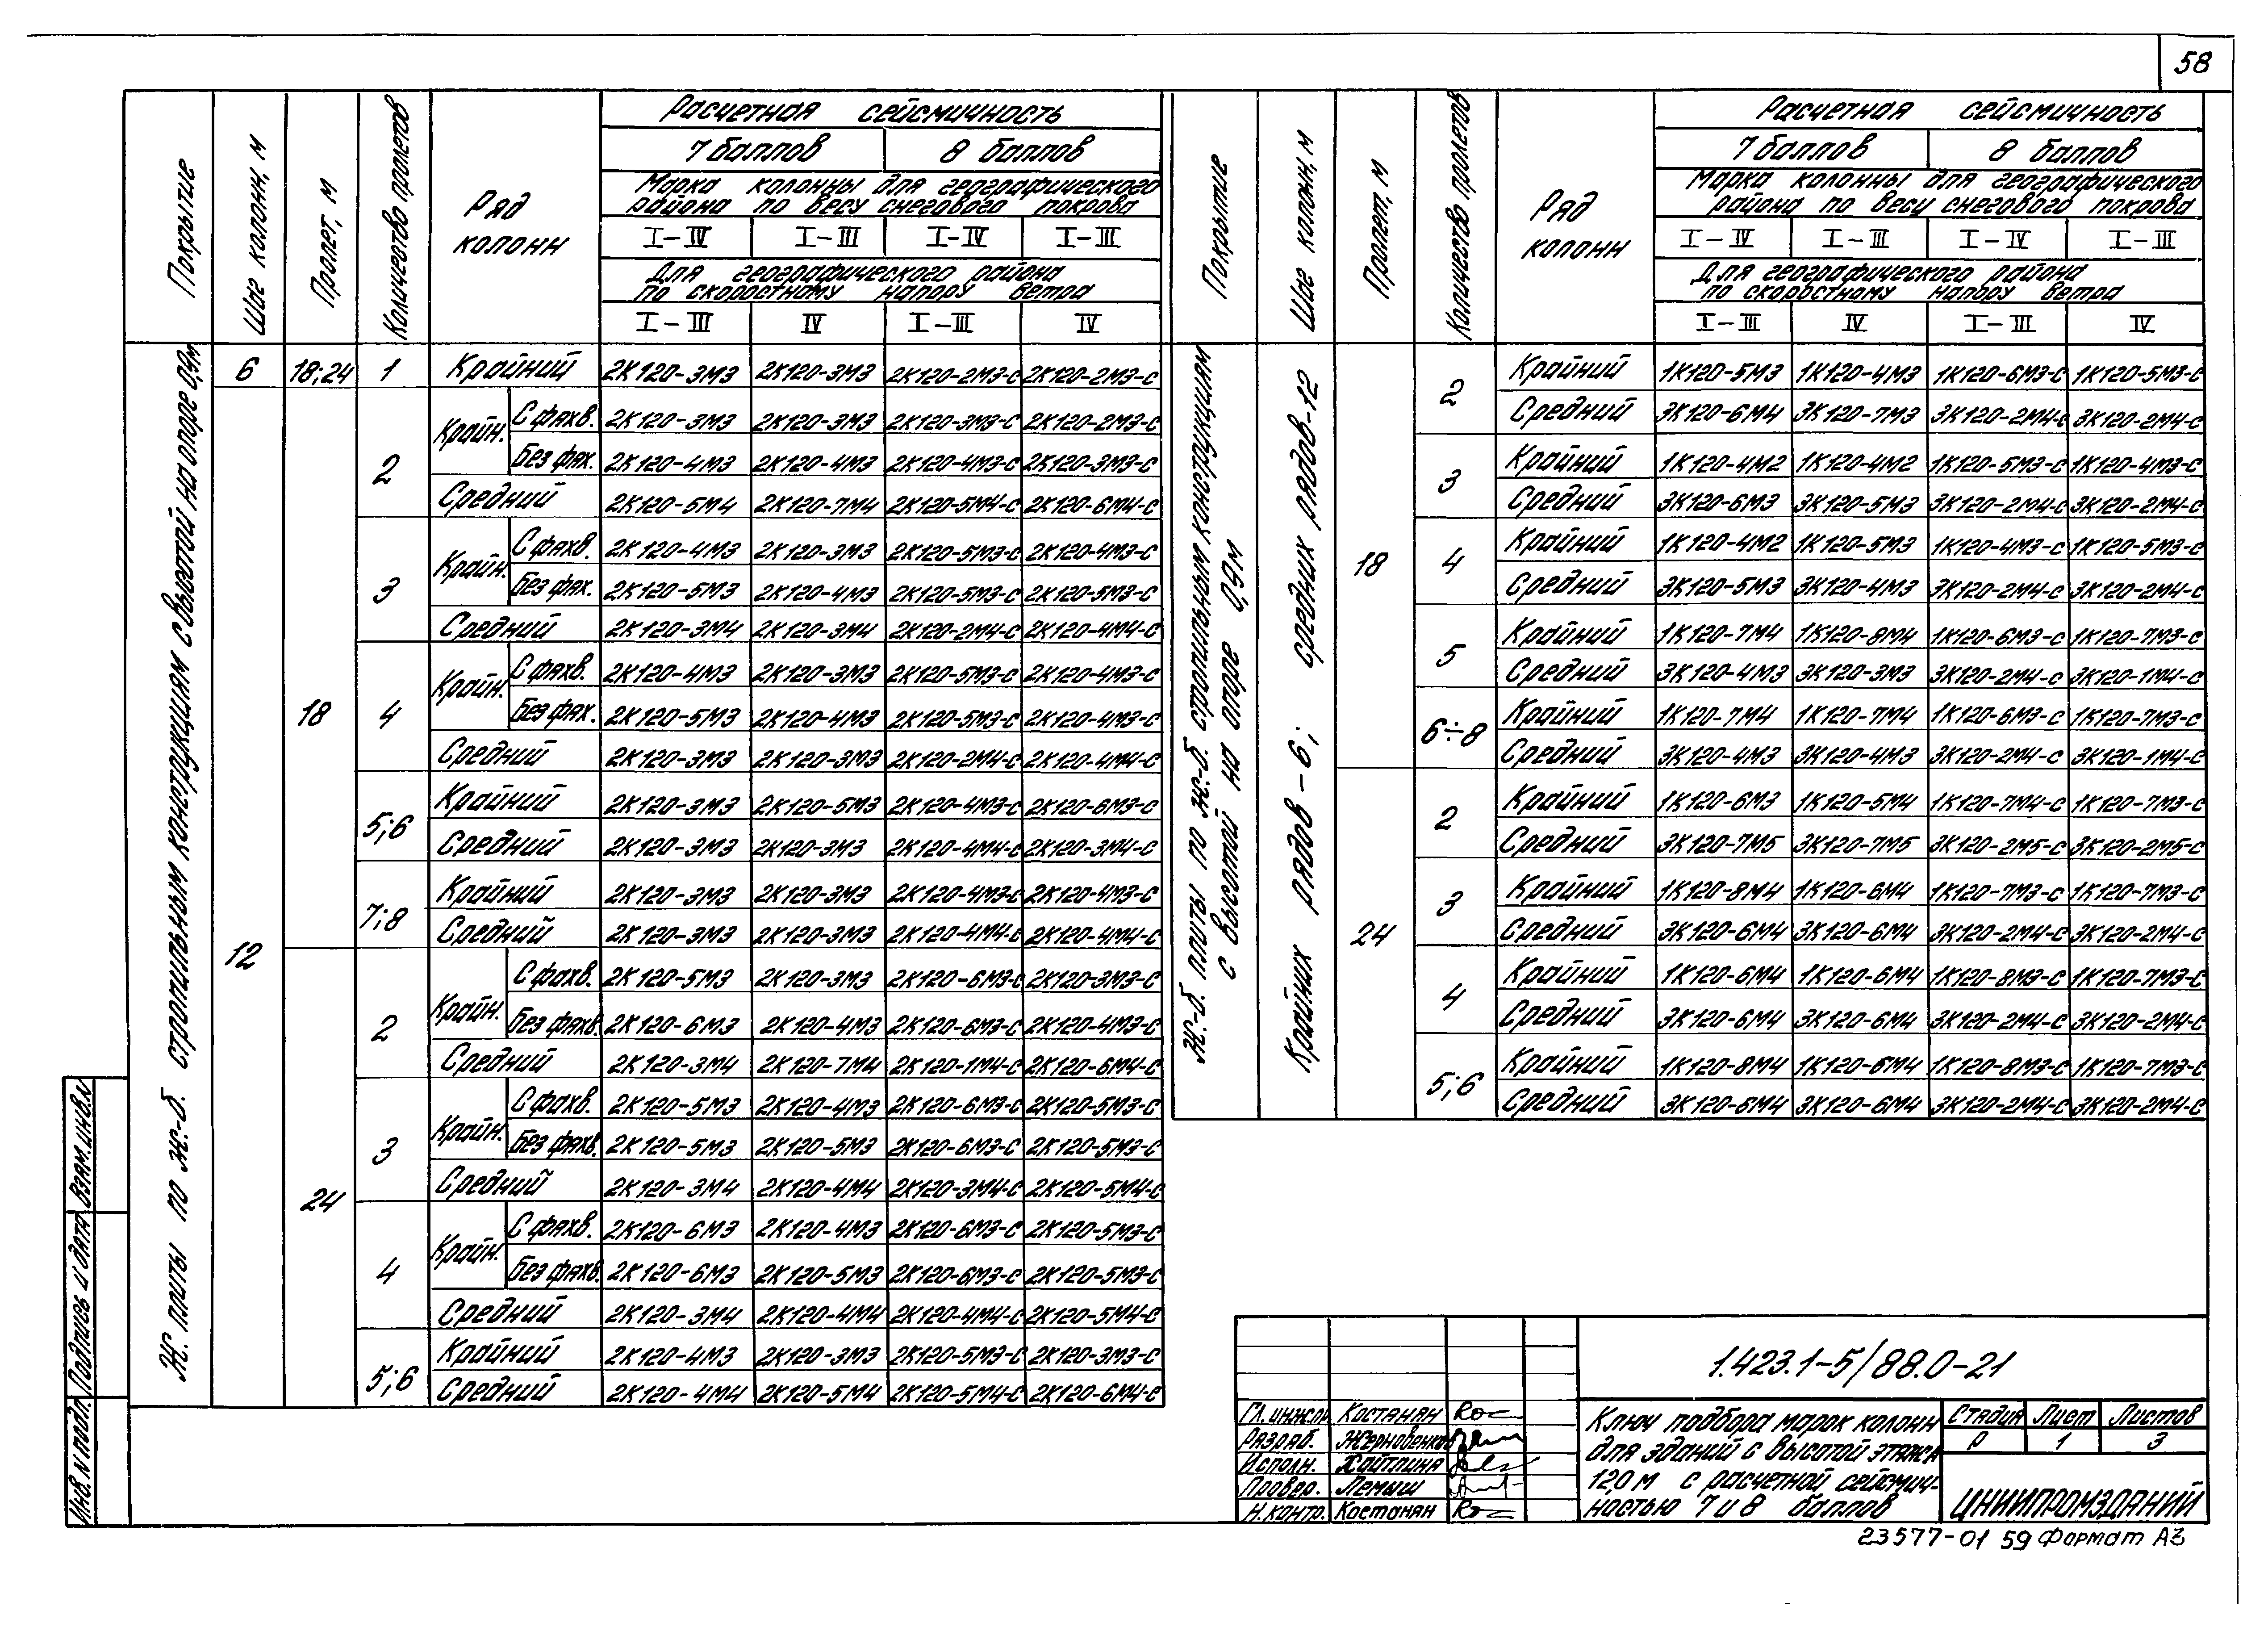 58
Покрытие
Шаг колонн, м
Пролет, м
Количество пролетов
Ряд колонн
Расчетная сейсмичность
7 баллов 8 баллов
Марка колонны для географического
района по весу снегового покрова
I–IV I–III I–IV I–III
Для географического района
по скоростному напору ветра
I–III IV I–III IV
Ж. плиты по ж.-б. стропильным конструкциям с высотой на опоре 0,9м
6 18;24 1 Крайний 2К120-3М3 2К120-3М3 2К120-2М3-С 2К120-2М3-С
12
18
2 Крайн. С фахв. 2К120-3М3 2К120-3М3 2К120-3М3-С 2К120-2М3-С
Без фах. 2К120-4М3 2К120-4М3 2К120-4М3-С 2К120-3М3-С
Средний 2К120-5М4 2К120-7М4 2К120-5М4-С 2К120-6М4-С
3 Крайн. С фахв. 2К120-4М3 2К120-3М3 2К120-5М3-С 2К120-4М3-С
Без фах. 2К120-5М3 2К120-4М3 2К120-5М3-С 2К120-5М3-С
Средний 2К120-3М4 2К120-3М4 2К120-2М4-С 2К120-4М4-С
4 Крайн. С фахв. 2К120-4М3 2К120-3М3 2К120-5М3-С 2К120-4М3-С
Без фах. 2К120-5М3 2К120-4М3 2К120-5М3-С 2К120-4М3-С
Средний 2К120-3М3 2К120-3М3 2К120-2М4-С 2К120-4М4-С
5;6 Крайний 2К120-3М3 2К120-5М3 2К120-4М3-С 2К120-6М3-С
Средний 2К120-3М3 2К120-3М3 2К120-4М4-С 2К120-3М4-С
7;8 Крайний 2К120-3М3 2К120-3М3 2К120-4М3-С 2К120-4М3-С
Средний 2К120-3М3 2К120-3М3 2К120-4М4-С 2К120-4М4-С
24
2 Крайн. С фахв. 2К120-5М3 2К120-3М3 2К120-6М3-С 2К120-3М3-С
Без фахв. 2К120-6М3 2К120-4М3 2К120-6М3-С 2К120-4М3-С
Средний 2К120-3М4 2К120-7М4 2К120-1М4-С 2К120-6М4-С
3 Крайн. С фахв. 2К120-5М3 2К120-4М3 2К120-6М3-С 2К120-5М3-С
Без фахв. 2К120-5М3 2К120-5М3 2К120-6М3-С 2К120-5М3-С
Средний 2К120-3М4 2К120-4М4 2К120-3М4-С 2К120-5М4-С
4 Крайн. С фахв. 2К120-6М3 2К120-4М3 2К120-6М3-С 2К120-5М3-С
Без фахв. 2К120-6М3 2К120-5М3 2К120-6М3-С 2К120-5М3-С
Средний 2К120-3М4 2К120-4М4 2К120-4М4-С 2К120-5М4-С
5;6 Крайний 2К120-4М3 2К120-3М3 2К120-5М3-С 2К120-3М3-С
Средний 2К120-4М4 2К120-5М4 2К120-5М4-С 2К120-6М4-С
Покрытие
Шаг колонн, м
Пролет, м
Количество пролетов
Ряд колонн
Расчетная сейсмичность
7 баллов 8 баллов
Марка колонны для географического
района по весу снегового покрова
I–IV I–III I–IV I–III
Для географического района
по скоростному напору ветра
I–III IV I–III IV
Ж.-б. плиты по ж.-б. стропильным конструкциям
с высотой на опоре 0,9м
Крайних рядов – 6; средних рядов – 12
18
2 Крайний 1К120-5М3 1К120-4М3 1К120-6М3-С 1К120-5М3-С
Средний 3К120-6М4 3К120-7М3 3К120-2М4-С 3К120-2М4-С
3 Крайний 1К120-4М2 1К120-4М2 1К120-5М3-С 1К120-4М3-С
Средний 3К120-6М3 3К120-5М3 3К120-2М4-С 3К120-2М4-С
4 Крайний 1К120-4М2 1К120-5М3 1К120-4М3-С 1К120-5М3-С
Средний 3К120-5М3 3К120-4М3 3К120-2М4-С 3К120-2М4-С
5 Крайний 1К120-7М4 1К120-8М4 1К120-6М3-С 1К120-7М3-С
Средний 3К120-4М3 3К120-3М3 3К120-2М4-С 3К120-1М4-С
6÷8 Крайний 1К120-7М4 1К120-7М4 1К120-6М3-С 1К120-7М3-С
Средний 3К120-4М3 3К120-4М3 3К120-2М4-С 3К120-1М4-С
24
2 Крайний 1К120-6М3 1К120-5М4 1К120-7М4-С 1К120-7М3-С
Средний 3К120-7М5 3К120-7М5 3К120-2М5-С 3К120-2М5-С
3 Крайний 1К120-8М4 1К120-6М4 1К120-7М3-С 1К120-7М3-С
Средний 3К120-6М4 3К120-6М4 3К120-2М4-С 3К120-2М4-С
4 Крайний 1К120-6М4 1К120-6М4 1К120-8М3-С 1К120-7М3-С
Средний 3К120-6М4 3К120-6М4 3К120-2М4-С 3К120-2М4-С
5;6 Крайний 1К120-8М4 1К120-6М4 1К120-8М3-С 1К120-7М3-С
Средний 3К120-6М4 3К120-6М4 3К120-2М4-С 3К120-2М4-С
Инв.N подл. Подпись и дата Взам.инв.N
1.423.1-5/88.0-21
Гл. инж. Костанян
Разраб. Жерновенков
Исполн. Хайтлина
Провер. Лемыш
Н.контр. Костанян
Ключ подбора марок колонн
для зданий с высотой этажа
12,0 м с расчетной сейсмич-
ностью 7 и 8 баллов
Стадия Лист Листов
Р 1 3
ЦНИИПРОМЗДАНИЙ
23577-01 59 Формат А3